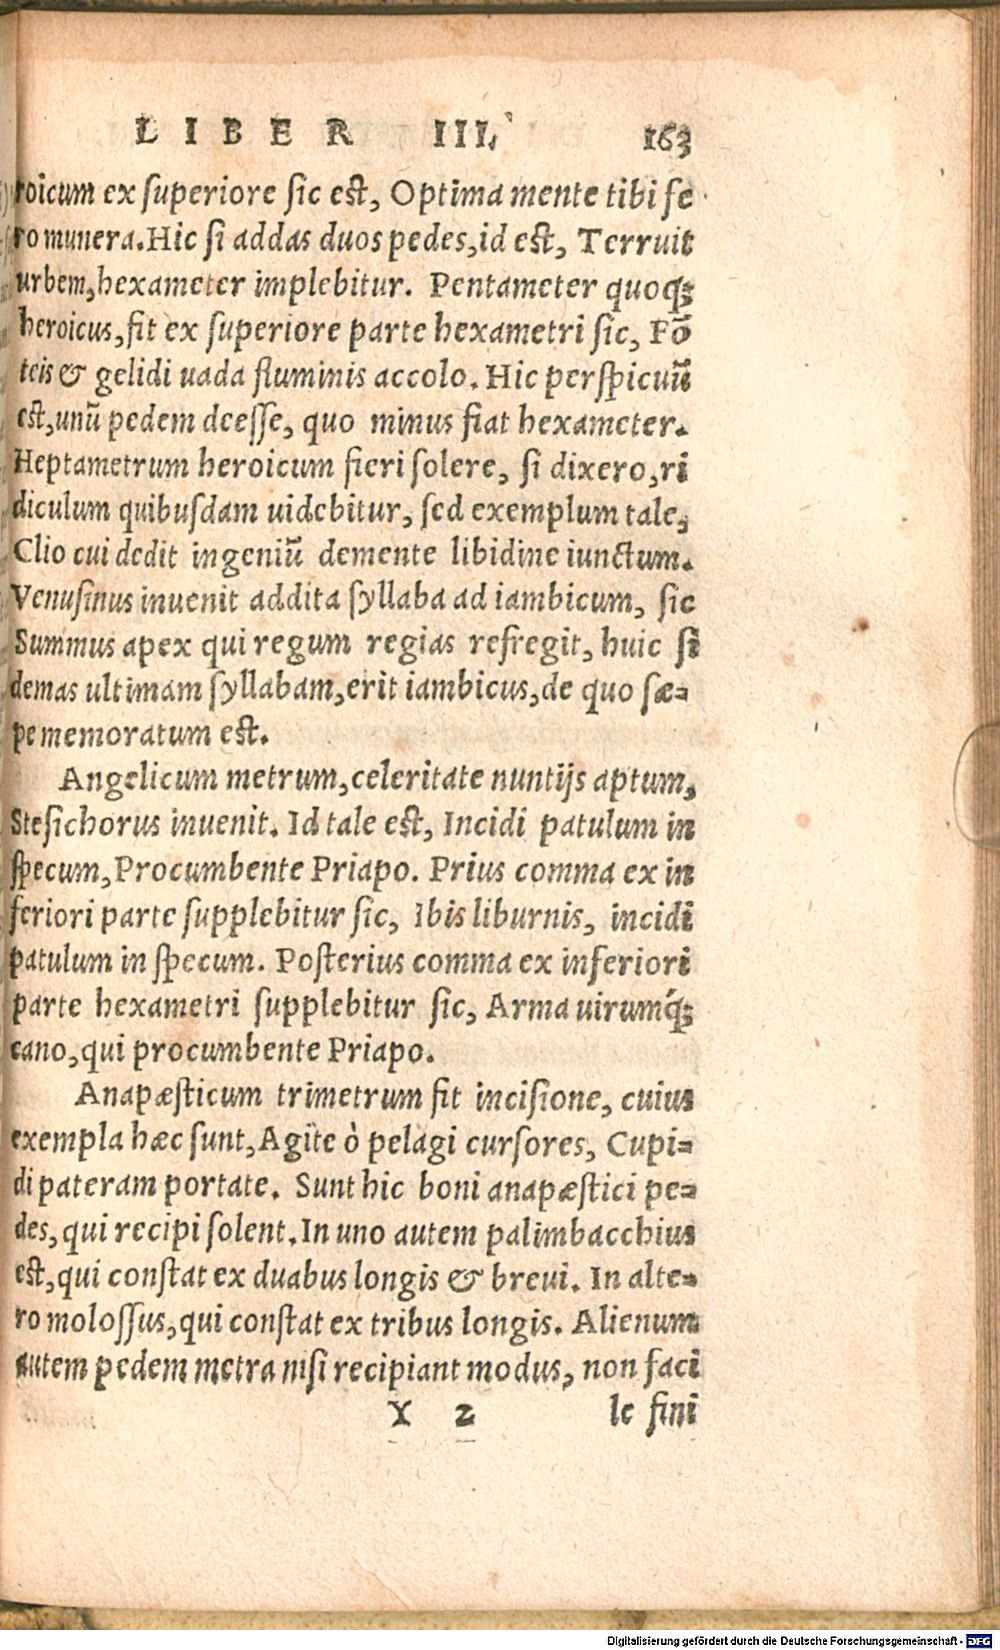 LIBER III. 163
roicum ex superiore sic est, Optima mente tibi fe
ro munera. Hic si addas duos pedes, id est, Terruit
urbem, hexameter implebitur. Pentameter quoq;
heroicus, fit ex superiore parte hexametri sic, Fō
teis & gelidi uada fluminis accolo. Hic perspicuū
est, unū pedem deesse, quo minus fiat hexameter.
Heptametrum heroicum fieri solere, si dixero, ri
diculum quibusdam uidebitur, sed exemplum tale,
Clio cui dedit ingeniū demente libidine iunctum.
Venusinus inuenit addita syllaba ad iambicum, sic
Summus apex qui regum regias refregit, huic si
demas ultimam syllabam, erit iambicus, de quo sæ-
pe memoratum est.
Angelicum metrum, celeritate nuntijs aptum,
Stesichorus inuenit. Id tale est, Incidi patulum in
specum, Procumbente Priapo. Prius comma ex in
feriori parte supplebitur sic, Ibis liburnis, incidi
patulum in specum. Posterius comma ex inferiori
parte hexametri supplebitur sic, Arma uirumq́;
cano, qui procumbente Priapo.
Anapæsticum trimetrum fit incisione, cuius
exempla hæc sunt, Agite ò pelagi cursores, Cupi-
di pateram portate. Sunt hic boni anapæstici pe-
des, qui recipi solent. In uno autem palimbacchius
est, qui constat ex duabus longis & breui. In alte-
ro molossus, qui constat ex tribus longis. Alienum
autem pedem metra nisi recipiant modus, non faci
X 2 le fini
Digitalisierung gefördert durch die Deutsche Forschungsgemeinschaft - DFG